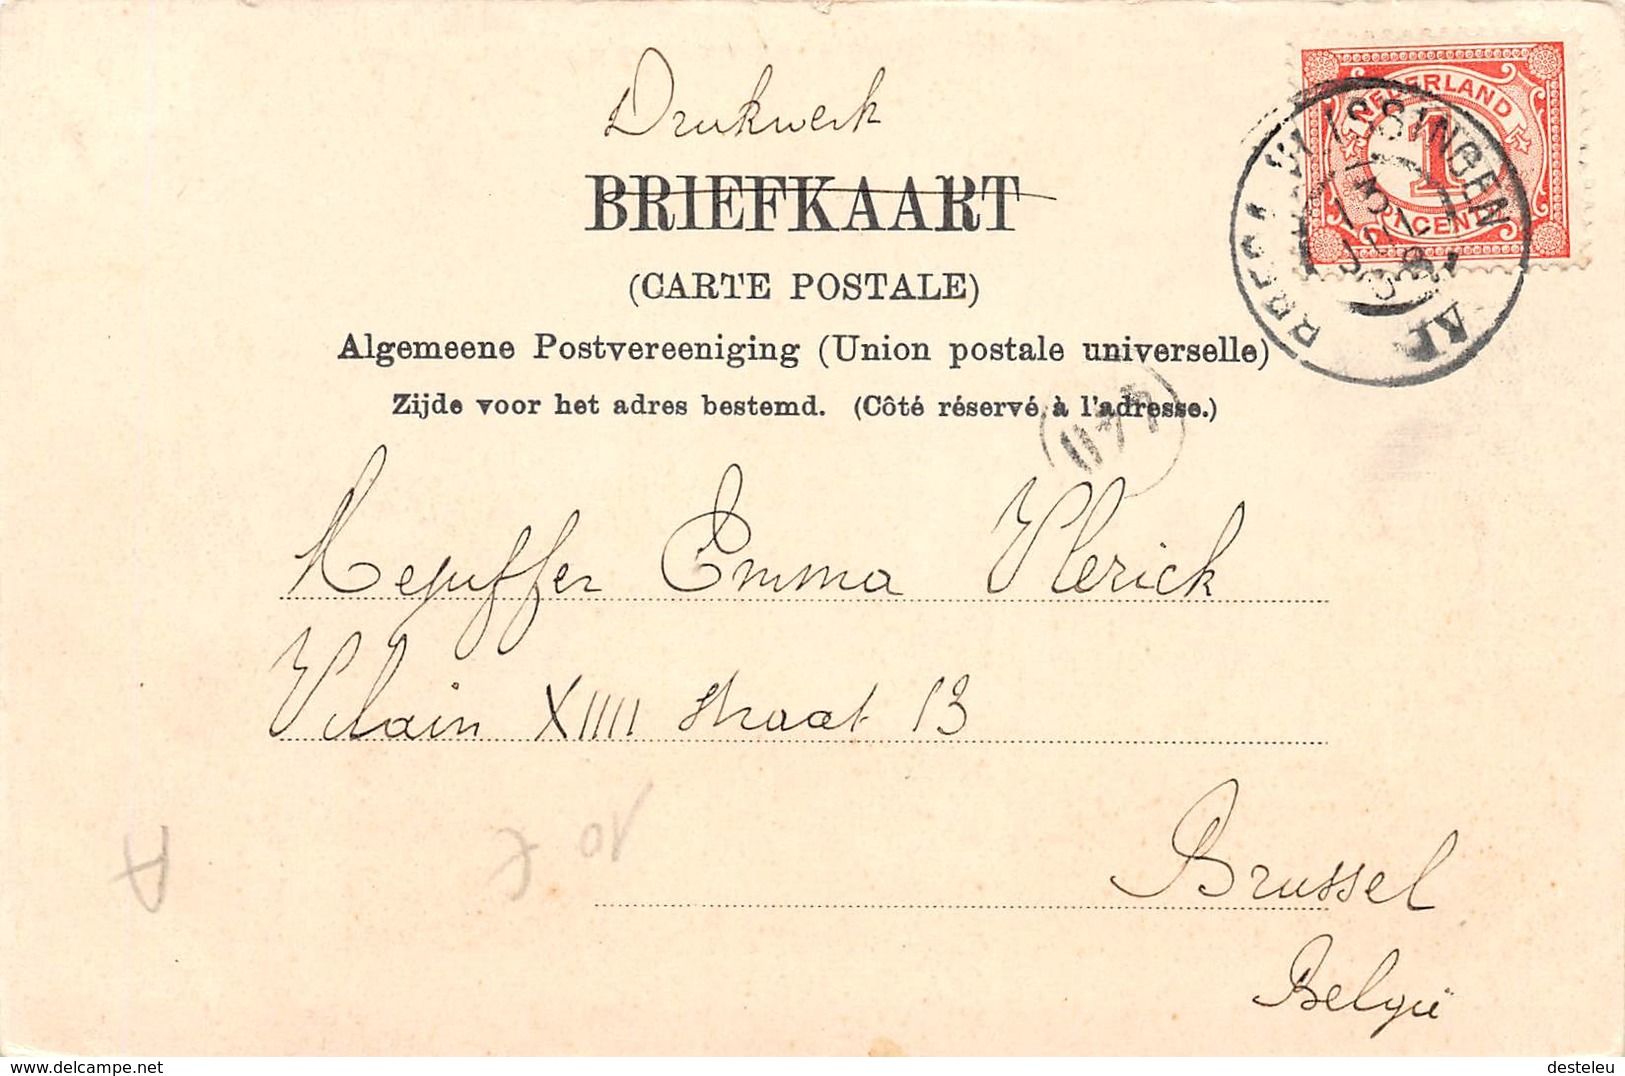 Drukwerk
BRIEFKAART
(CARTE POSTALE)
Algemeene Postvereeniging (Union postale universelle)
Zijde voor het adres bestemd. (Côté réservé à l'adresse.)
NEDERLAND
1
CENT
VLISSINGEN
440
Mejuffer Emma Vlerick
Vilain XIIII straat 13
Brussel
België
A
10 €
delcampe.net
desteleu